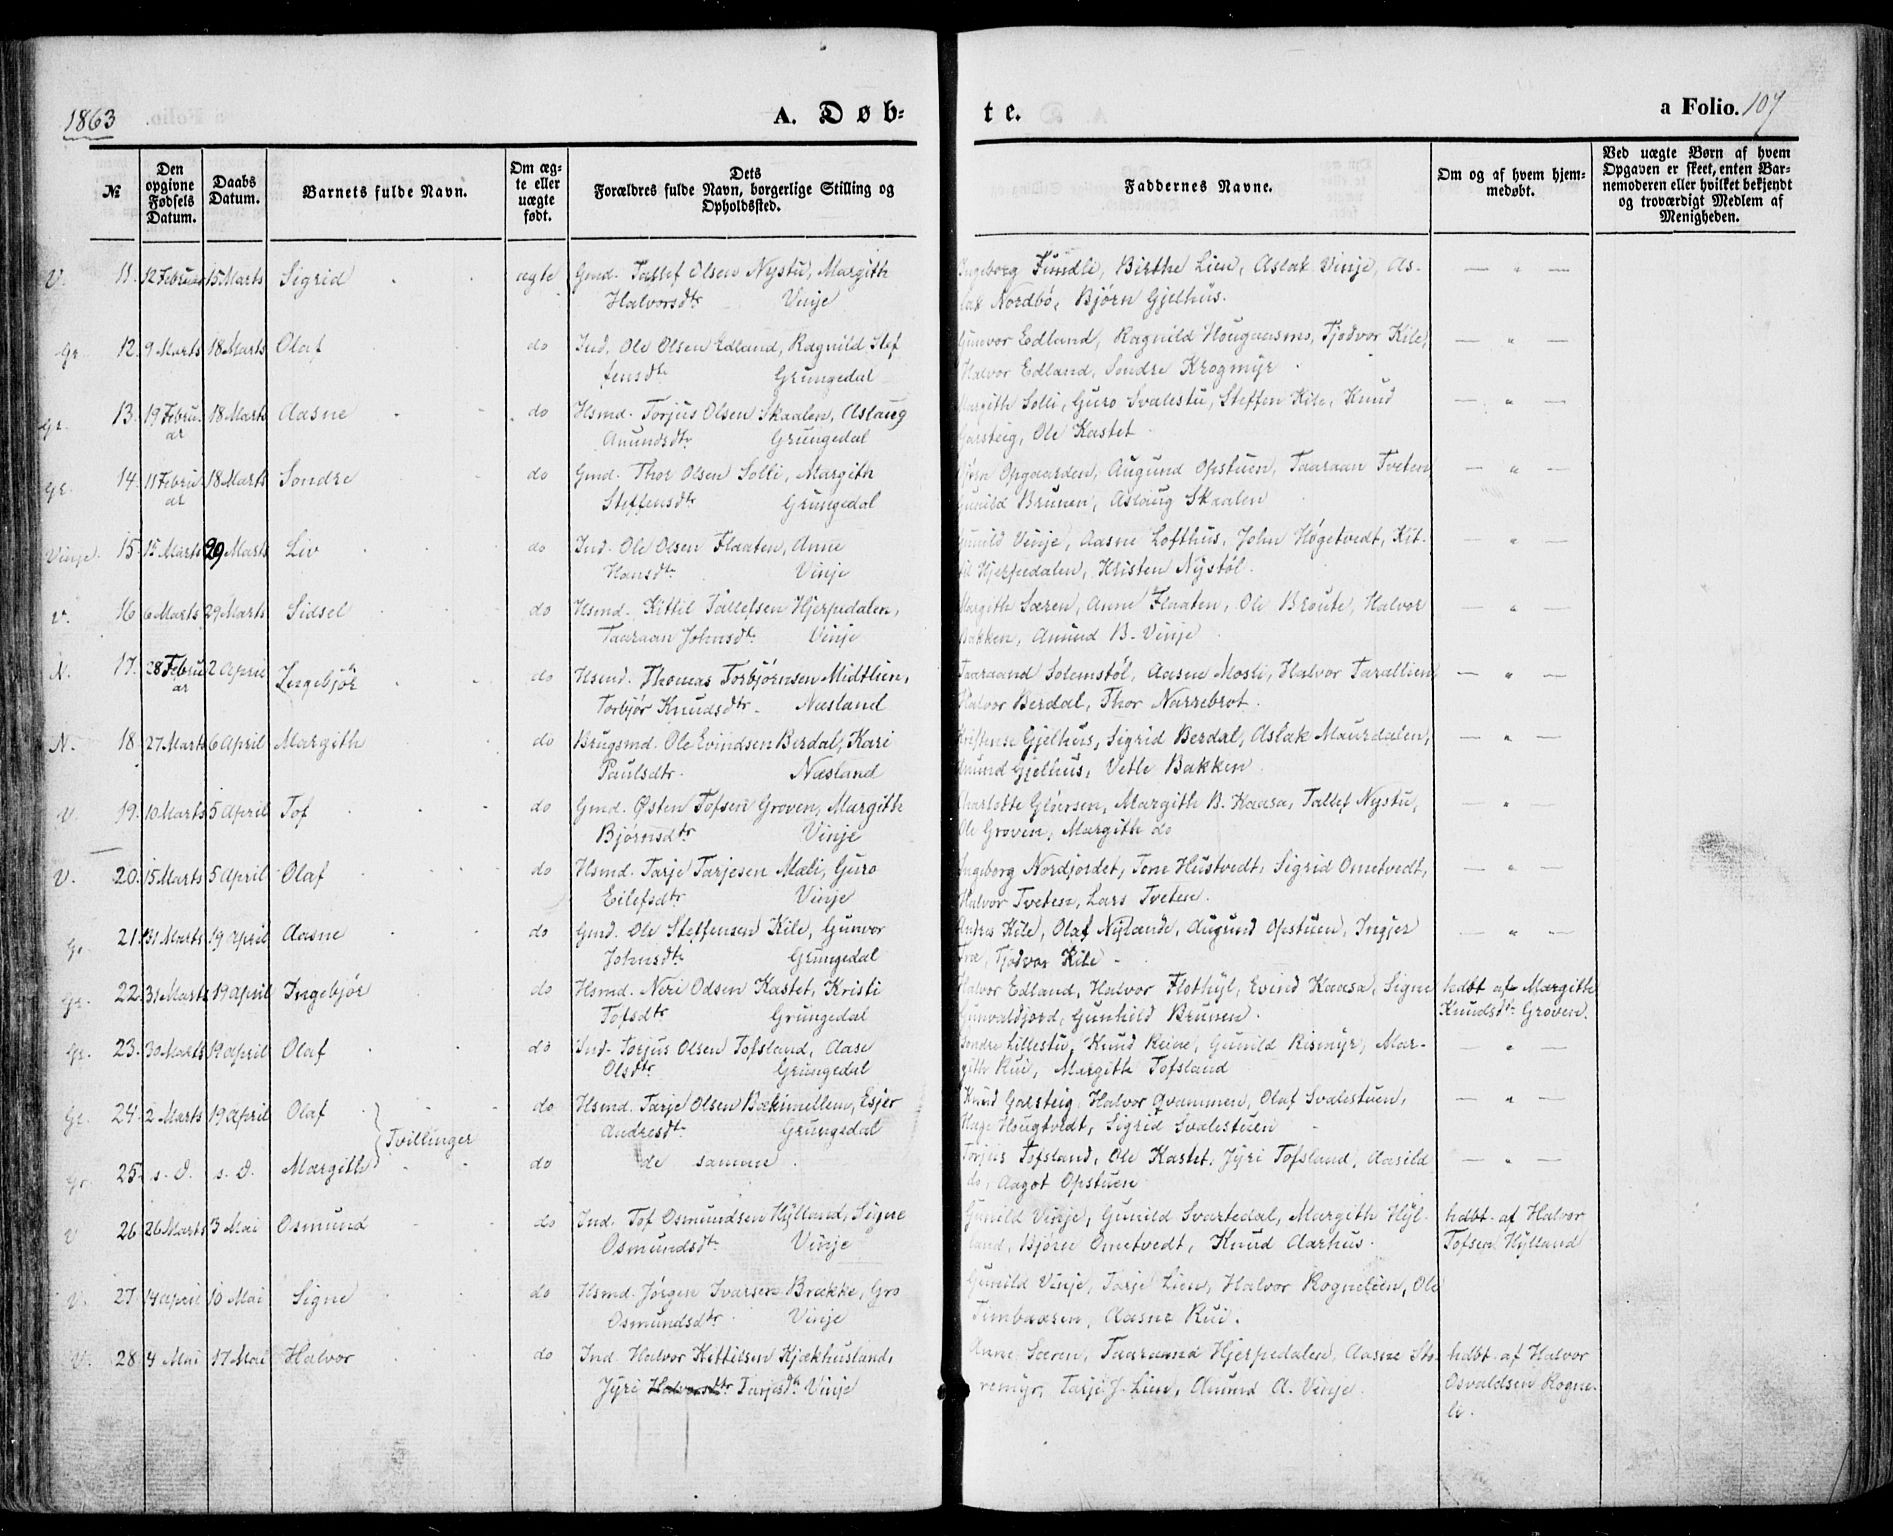 1863
A. Døb-
te.
a Folio. 107
№
Den opgivne Fødsels Datum.
Daabs Datum.
Barnets fulde Navn.
Om ægte eller uægte født.
Dets Forældres fulde Navn, borgerlige Stilling og Opholdssted.
Faddernes Navne.
Om og af hvem hjemmedøbt.
Ved uægte Børn af hvem Opgaven er skeet, enten Barnemoderen eller hvilket bekjendt og troværdigt Medlem af Menigheden.
V. 11. 12 Februar 15 Marts Sigrid ægte Gmd. Tallef Olsen Nystu, Margith Ingeborg Findli, Birthe Lien, Aslak Vinje, As- — " —
Halvorsdtr Vinje lak Nordbö, Bjørn Gjelhus.
Gr. 12. 9 Marts 18 Marts Olaf do Ind. Ole Olsen Edland, Ragnild Stef Gunvor Edland, Ragnild Hougaasms, Tjodvor Kile, — " —
fensdtr Grungedal Halvor Edland, Sondre Krogmyr
Gr. 13. 19 Febru- 18 Marts Aasne do Hsmd. Torjus Olsen Skaalen, Aslaug Margith Solli, Guro Svalestu, Steffen Kile, Knud — " —
ar Anundsdtr Grungedal Galsteig, Ole Kastet
Gr. 14. 11 Febru 18 Marts Sondre do Gmd. Thor Olsen Solli, Margith Bjørn Opgaarden, Augund Opstuen, Taaraan Tveten — " —
ar Steffensdtr Grungedal Gunild Brunen, Aslaug Skaalen
Vinje. 15. 15 Marts 29 Marts Liv do Ind. Ole Olsen Flaaten, Anne Gunild Vinje, Aasne Lofthus, John Høgetvedt, Kit- — " —
Hansdtr. Vinje til Hjerpedalen, Kristen Nystøl.
V. 16 6 Marts 29 Marts Sidsel do Hsmd. Kittil Tallefsen Hjerpedalen, Margith Særen, Anne Flaaten, Ole Broute, Halvor — " —
Taaraan Johnsdtr. Vinje Bakken, Anund B. Vinje
N. 17. 28 Febru 2 April Ingebjør do Hsmd. Thomas Torbjørnsen Midtlien, Taaraand Solemstøl, Aasne Mosli, Halvor Tarallien — " —
ar Torbjør Knudsdtr. Næsland Halvor Berdal, Thor Narrebrot.
N. 18. 27 Marts 6 April Margith do Brugsmd. Ole Evindsen Berdal, Kari Kristense Gjelhus, Sigrid Berdal, Aslak Maurdalen, — " —
Paulsdtr. Næsland Anund Gjelhus, Vetle Bakken
V. 19. 10 Marts 5 April Tof do Gmd. Østen Tofsen Groven, Margith Charlotte Gløersen, Margith B. Kaasa, Tallef Nystu, — " —
Bjørnsdtr Vinje Ole Groven, Margith do
V. 20. 15 Marts 5 April Olaf do Hsmd. Tarje Tarjesen Mæli, Guro Ingeborg Nordjordet, Tone Hustvedt, Sigrid Ometvedt, — " —
Eilefsdtr Vinje Halvor Tveten, Lars Tveten.
Gr. 21. 31 Marts 19 April Aasne do Gmd. Ole Steffensen Kile, Gunvor Andres Kile, Olaf Nylænde, Augund Opstuen, Ingjer — " —
Johnsdtr Grungedal Træ, Tjodvor Kile
Gr. 22. 31 Marts 19 April Ingebjør do Hsmd. Neri Odsen Kastet, Kristi Halvor Edland, Halvor Flothyl, Evind Kaasa, Signe hdbt af Margith
Tofsdtr Grungedal Gunvaldjord, Gunhild Brunen. Knudsdtr. Groven.
Gr. 23. 30 Marts 19 April Olaf do Ind. Torjus Olsen Tofsland, Aase Sondre Lillestu, Knud Reine, Gunild Rismyr, Mar- — " —
Olsdtr Grungedal gith Rui, Margith Tofsland
Gr. 24. 2 Marts 19 April Olaf do Hsmd. Tarje Olsen Bækimellem, Esjer Knud Galsteig, Halvor Qvammen, Olaf Svalestuen, — " —
Tvillinger Andresdtr. Grungedal Hage Hougtvedt, Sigrid Svalestuen
Gr. 25. s. D. s. D. Margith do de samme Torjus Tofsland, Ole Kastet, Jyri Tofsland, Aasild — " —
do, Aagot Opstuen
V 26. 26 Marts 3 Mai Osmund do Ind. Tof Osmundsen Hylland, Signe Gunild Vinje, Gunild Svartedal, Margith Hyl- hdbt. af Halvor
Osmundsdtr. Vinje land, Bjørn Ometvedt, Knud Aarhus. Tofsen Hylland
V. 27. 14 April 10 Mai Signe do Hsmd. Jørgen Ivarsen Brække, Gro Gunild Vinje, Tarje Lien, Halvor Rognelien, Ole
Osmundsdtr. Vinje Timbaasen, Aasne Rui.
V. 28. 4 Mai 17 Mai Halvor do Ind. Halvor Kittilsen Kjækhusland, Anne Særen, Taaraand Hjerpedalen, Aasne Sto- hdbt. af Halvor
Jyri Halvorsdtr Tarjesdtr. Vinje remyr, Tarje J. Lien, Anund A. Vinje. Osvaldsen Rogne-
li.